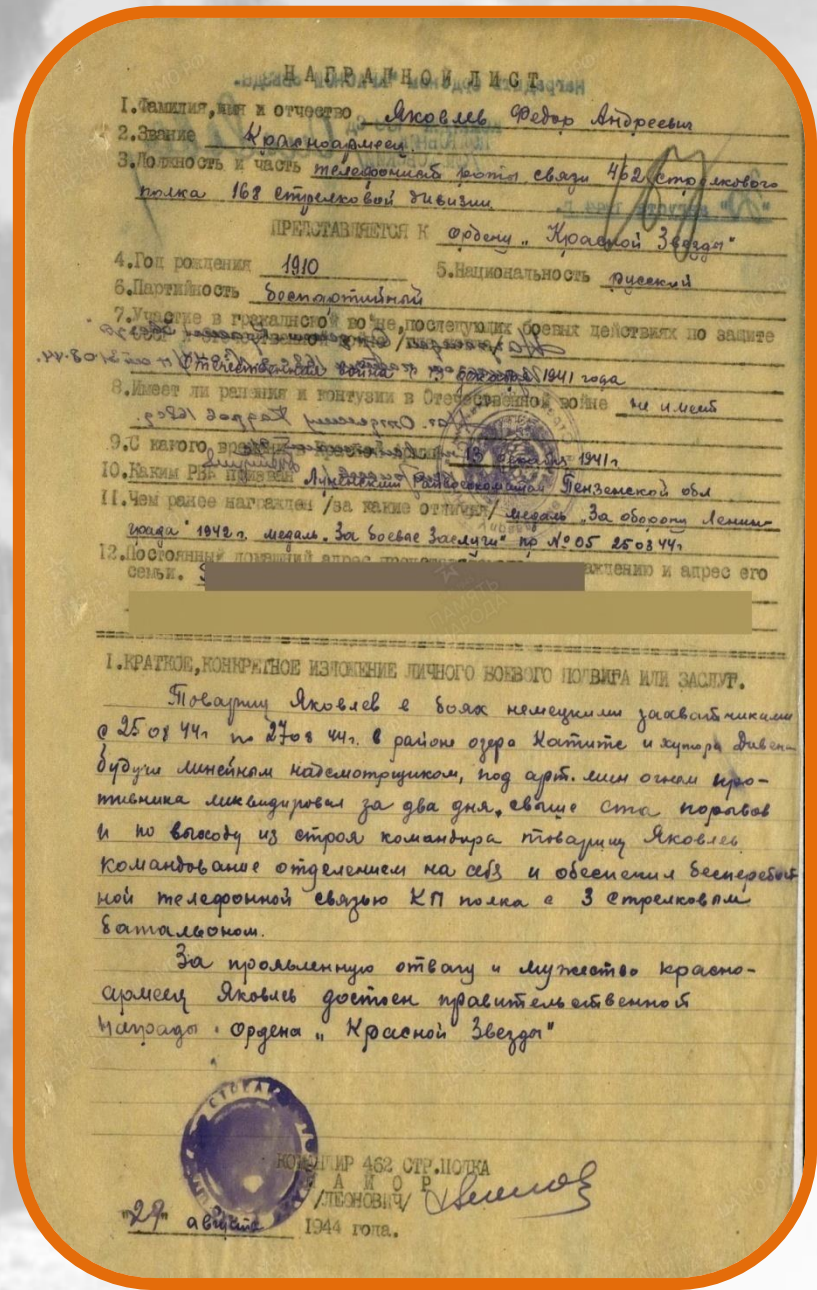 НАГРАДНОЙ ЛИСТ.
1.Фамилия,имя и отчество Яковлев Федор Андреевич
2.Звание Красноармеец
3.Должность и часть телефонист роты связи 462 стрелкового
полка 168 стрелковой дивизии
ПРЕДСТАВЛЯЕТСЯ К ордену „Красной Звезды"
4.Год рождения 1910 5.Национальность русский
6.Партийность беспартийный
7.Участие в гражданской войне,последующих боевых действиях по защите
Отечественная война с 1941 года
8.Имеет ли ранения и контузии в Отечественной войне не имеет
9.С какого 1941г
10.Каким РВК призван Райвоенкоматом Пензенской обл
11.Чем ранее награжден /за какие отличия/ медаль „За оборону Ленин-
града" 1942 г. медаль „За боевые Заслуги" пр № 05 25 03 44г
12.Постоянный домашний адрес и адрес его
семьи.
I.КРАТКОЕ,КОНКРЕТНОЕ ИЗЛОЖЕНИЕ ЛИЧНОГО БОЕВОГО ПОДВИГА ИЛИ ЗАСЛУГ.
Товарищ Яковлев в боях немецкими захватчиками
с 25 08 44г по 27 08 44г. в районе озера и хутора
будучи линейным надсмотрщиком, под арт. мин огнем про-
тивника ликвидировал за два дня, свыше ста порывов
и по выходу из строя командира товарищ Яковлев
командование отделением на себя и обеспечил бесперебой
ной телефонной связью КП полка с 3 стрелковым
батальоном.
За проявленную отвагу и мужество красно-
армеец Яковлев достоин правительственной
награды · Ордена „Красной Звезды"
КОМАНДИР 462 СТР.ПОЛКА
МАЙОР
/ЛЕОНОВИЧ/
"29" августа 1944 года.